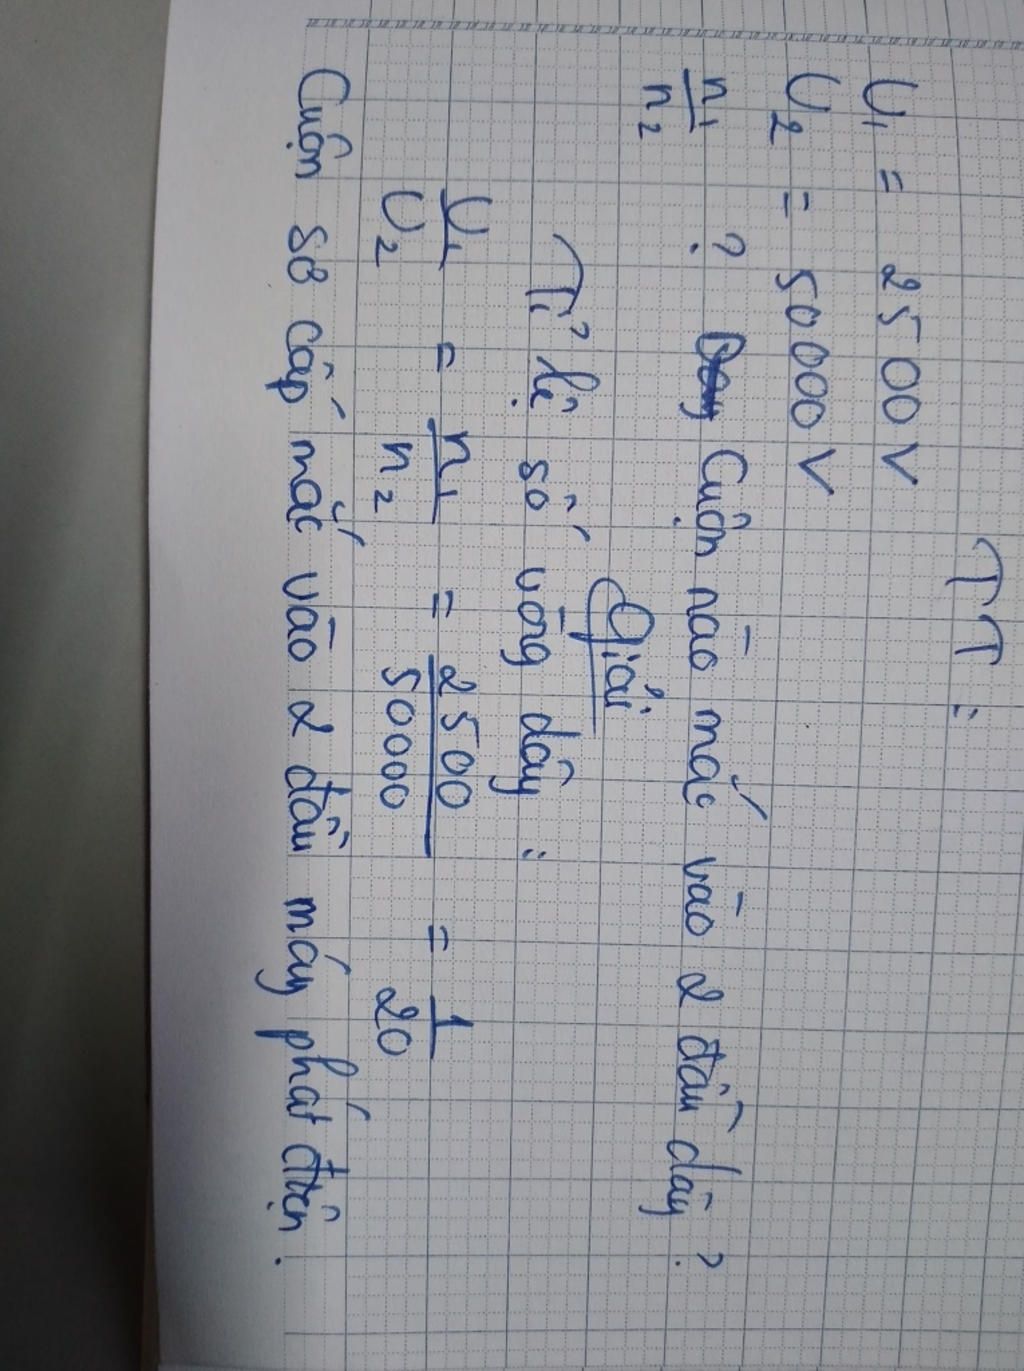 TT :
U1 = 2500 V
U2 = 50000 V
n1/n2 ? Cuộn nào mắc vào 2 đầu dây ?
Giải
Tỉ lệ số vòng dây :
U1/U2 = n1/n2 = 2500/50000 = 1/20
Cuộn sơ cấp mắc vào 2 đầu máy phát điện .